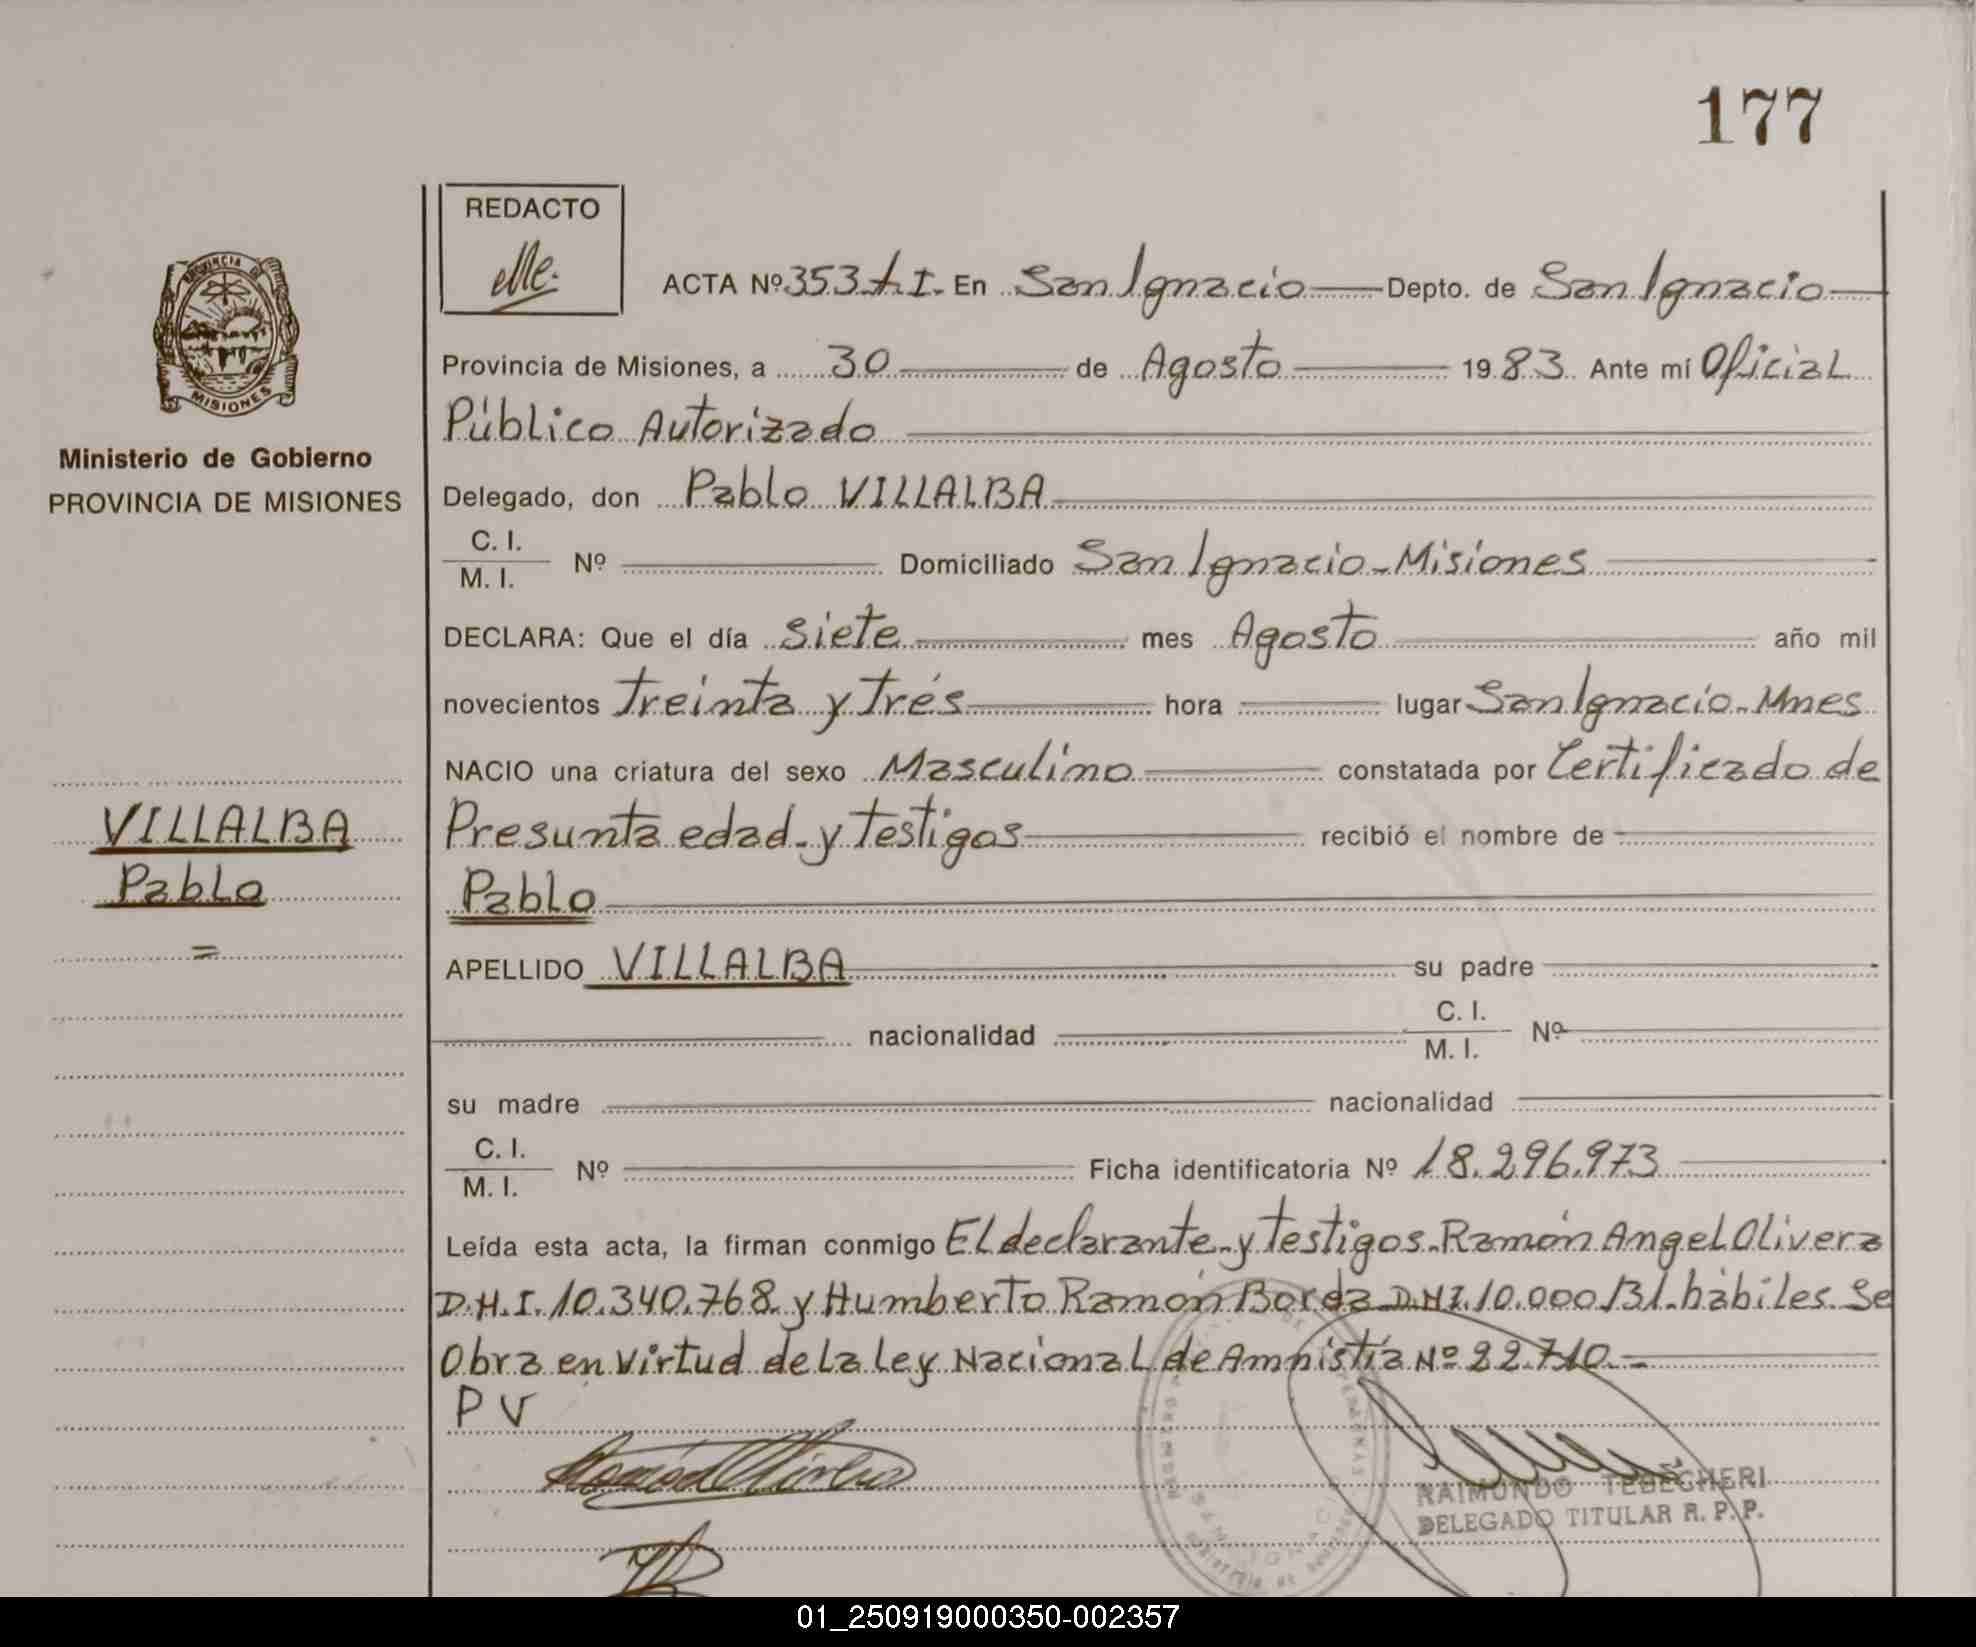 177
REDACTO
PROVINCIA DE
MISIONES
Ministerio de Gobierno
PROVINCIA DE MISIONES
VILLALBA
Pablo
=
ACTA Nº 353 t. I. En San Ignacio Depto. de San Ignacio
Provincia de Misiones, a 30 de Agosto 1983. Ante mí Oficial
Público Autorizado
Delegado, don Pablo VILLALBA
C. I.
M. I. Nº Domiciliado San Ignacio-Misiones
DECLARA: Que el día siete mes Agosto año mil
novecientos treinta y trés hora lugar San Ignacio-Mnes
NACIO una criatura del sexo Masculino constatada por Certificado de
Presunta edad-y testigos recibió el nombre de
Pablo
APELLIDO VILLALBA su padre
nacionalidad C. I.
M. I. Nº
su madre nacionalidad
C. I.
M. I. Nº Ficha identificatoria Nº 18.296.973
Leída esta acta, la firman conmigo El declarante-y testigos-Ramón Angel Olivera
D.N.I. 10.340.768 y Humberto Ramón Borda D.N.I. 10.000.131-hábiles. Se
Obra en virtud de la ley Nacional de Amnistía Nº 22.710.=
P V
RAIMUNDO TEDECHERI
DELEGADO TITULAR R. P. P.
01_250919000350-002357